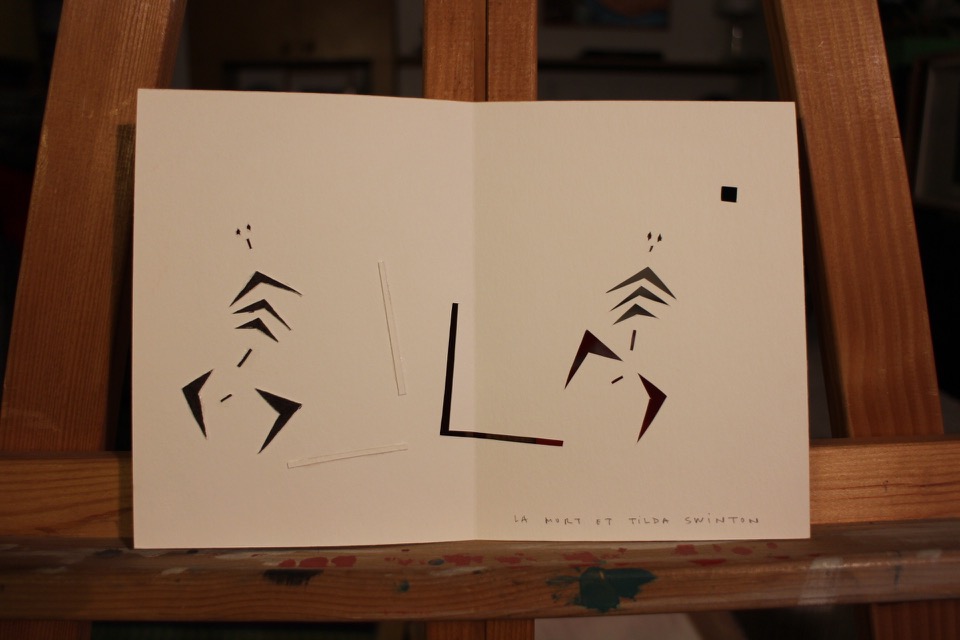 LA MORT ET TILDA SWINTON